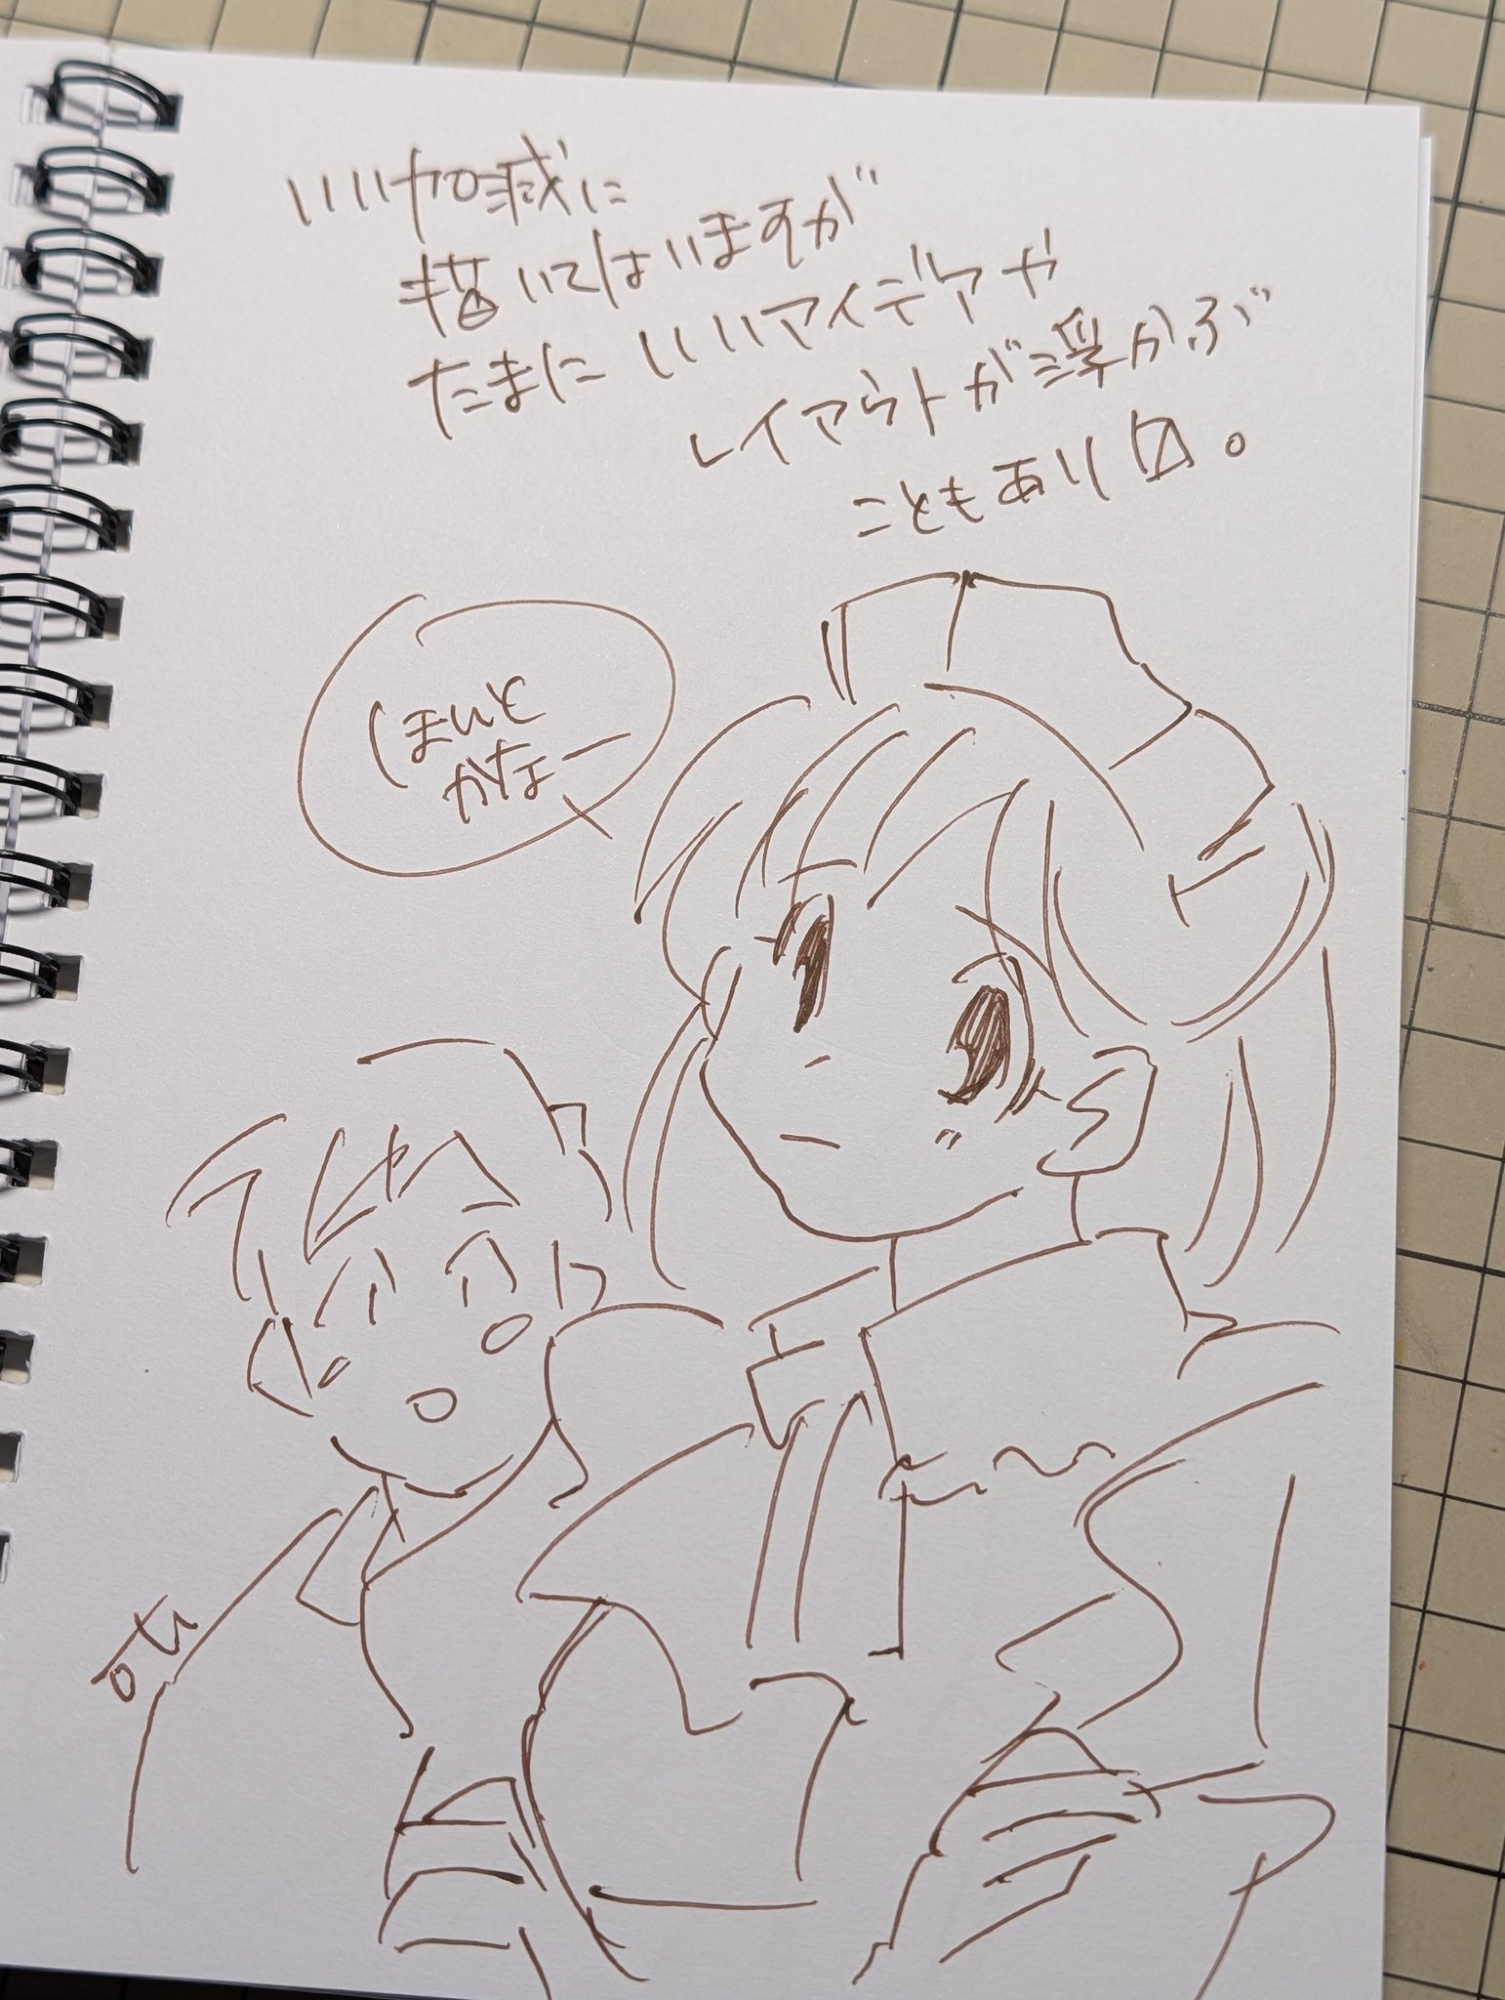 いい加減に
描いてはいますが
たまにいいアイデアや
レイアウトが浮かぶ
こともあり〼。
しまいと
かなー